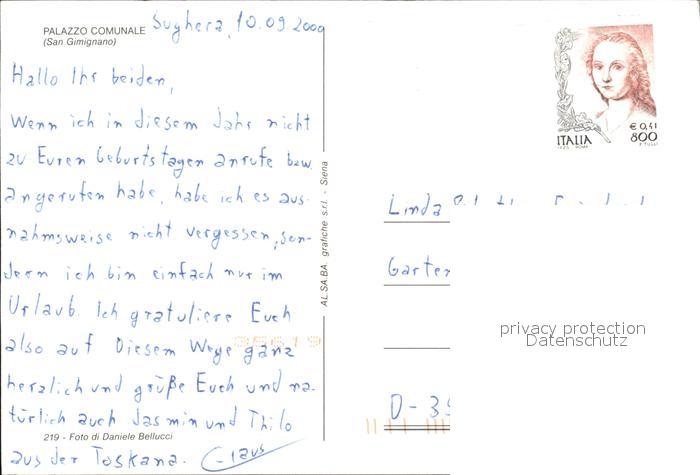 PALAZZO COMUNALE
(San Gimignano)
Sughera, 10.09.2000
Hallo Ihr beiden,
Wenn ich in diesem Jahr nicht
zu Euren Geburtstagen anrufe bzw.
angerufen habe, habe ich es aus-
nahmsweise nicht vergessen, son-
dern ich bin einfach nur im
Urlaub. Ich gratuliere Euch
also auf diesem Wege ganz
herzlich und grüße Euch und na-
türlich auch Jasmin und Thilo
219 - Foto di Daniele Bellucci
aus der Toskana. Claus
AL.SA.BA. grafiche s.r.l. - Siena
€ 0,41
ITALIA 800
Linda
Garten
D-35
privacy protection
Datenschutz